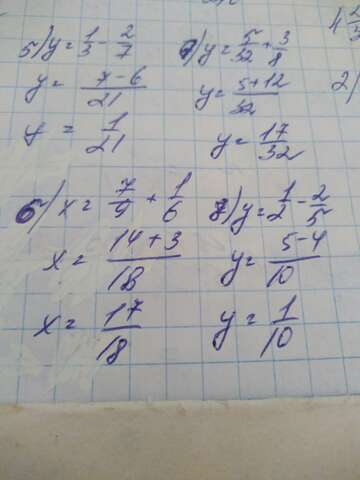 5) y = 1/3 - 2/7
y = 7-6/21
y = 1/21
y = 5/32 + 3/8
y = 5+12/32
y = 17/32
6) x = 7/9 + 1/6
x = 14+3/18
x = 17/18
8) y = 1/2 - 2/5
y = 5-4/10
y = 1/10
2)